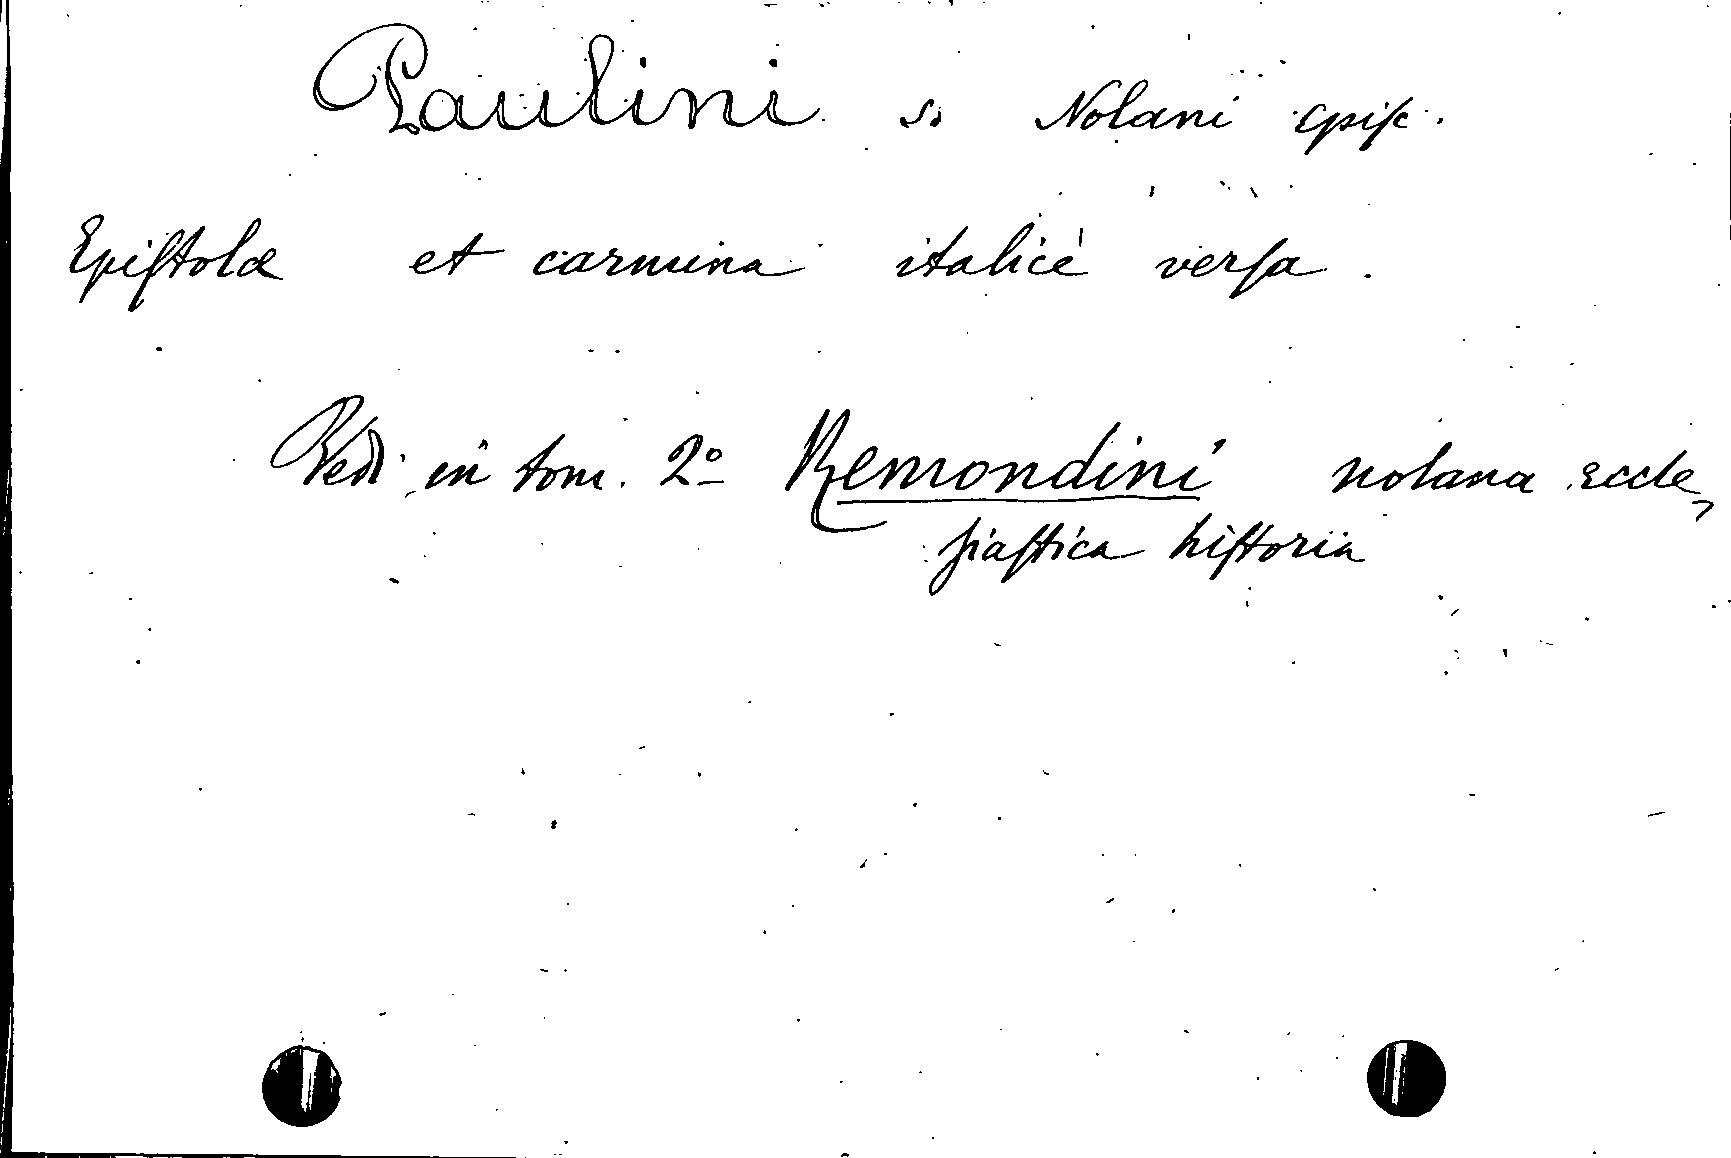 Paulini s. Nolani episc.
Epiſtolæ et carmina italicè verſa.
Vedi in tom. 2º Remondini nolana eccle,
ſiaſtica hiſtoria